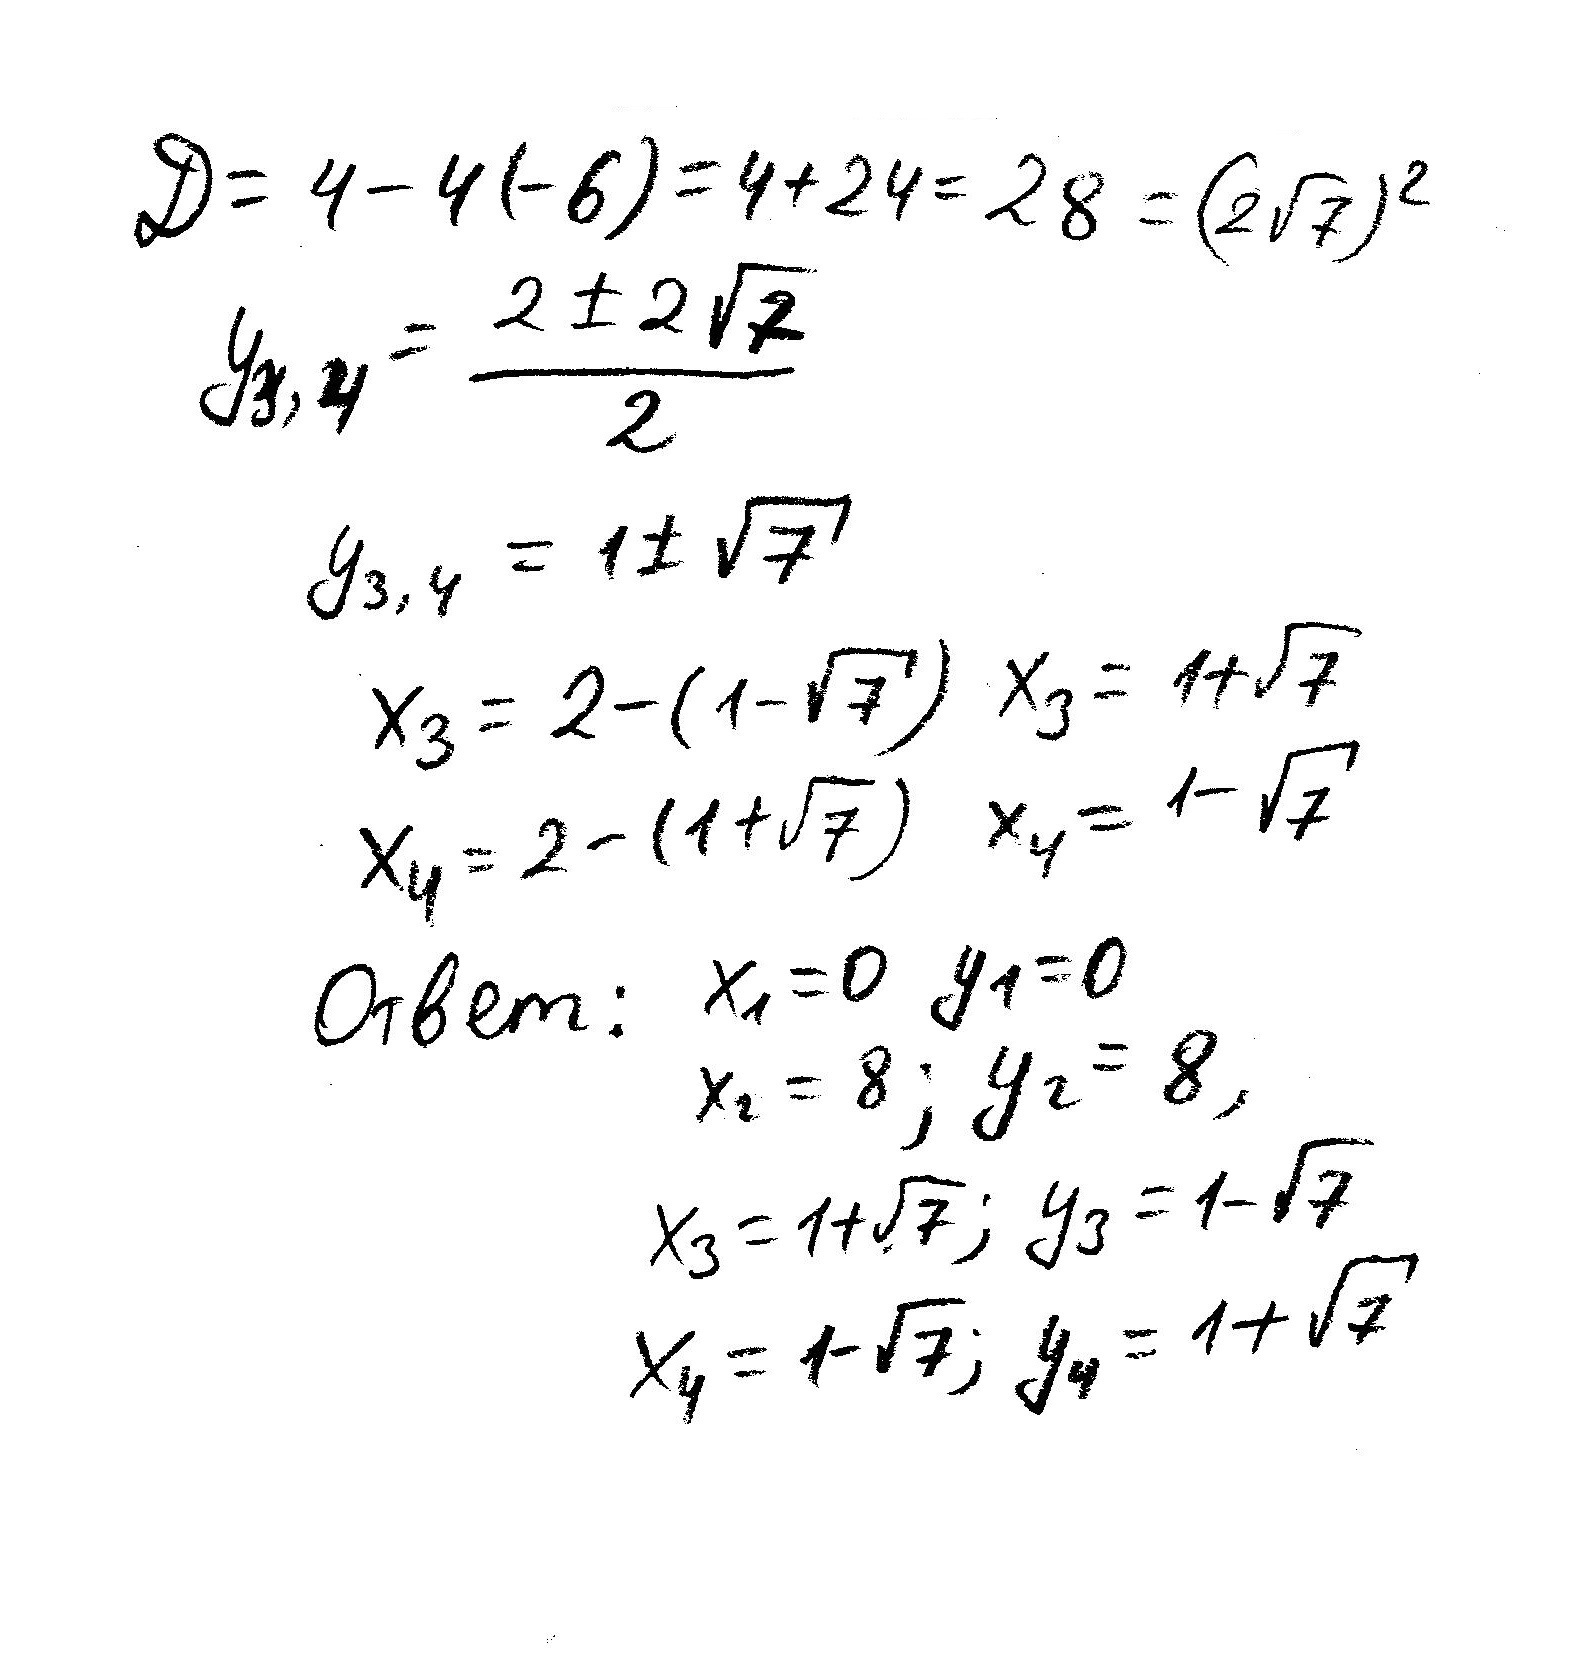 D = 4 − 4(−6) = 4 + 24 = 28 = (2√7)²
y₃,₄ = (2 ± 2√7)/2
y₃,₄ = 1 ± √7
x₃ = 2 − (1 − √7) x₃ = 1 + √7
x₄ = 2 − (1 + √7) x₄ = 1 − √7
Ответ: x₁ = 0 y₁ = 0
x₂ = 8; y₂ = 8,
x₃ = 1 + √7; y₃ = 1 − √7
x₄ = 1 − √7; y₄ = 1 + √7